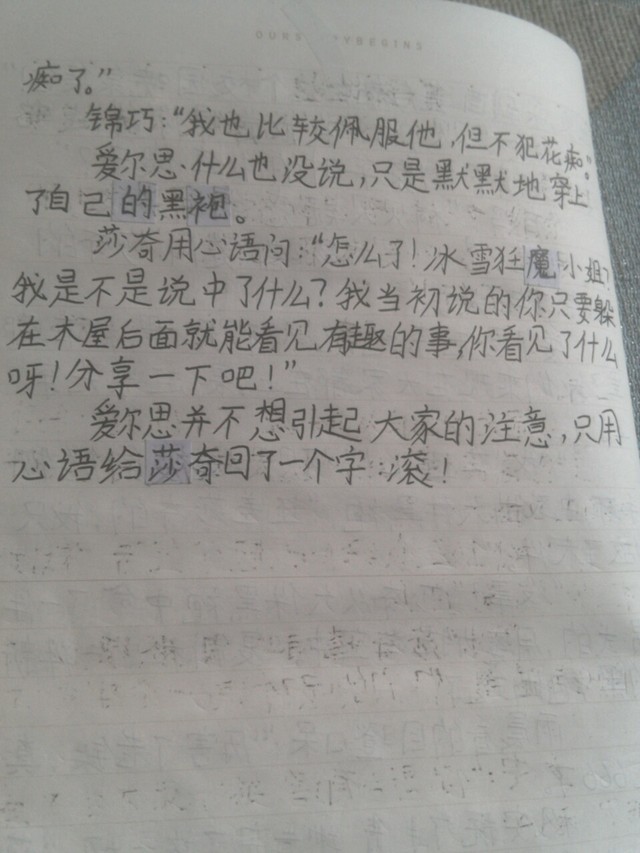 OURS
YBEGINS
痴了。”
锦巧：“我也比较佩服他，但不犯花痴。”
爱尔思·什么也没说，只是默默地穿上
了自己的黑袍。
莎奇用心语问：“怎么了！冰雪狂魔小姐？
我是不是说中了什么？我当初说的你只要躲
在木屋后面就能看见有趣的事，你看见了什么
呀！分享一下吧！”
爱尔思并不想引起大家的注意，只用
心语给莎奇回了一个字：滚！